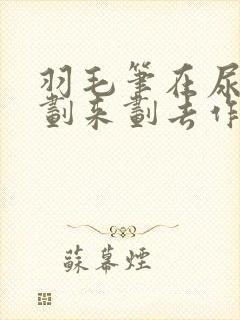 羽毛筆在尿
劃來劃去作
蘇幕煙